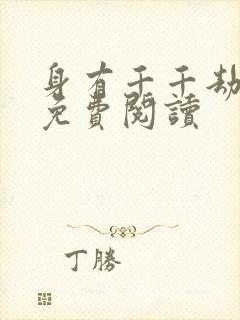 身有千千劫
免費閱讀
丁勝